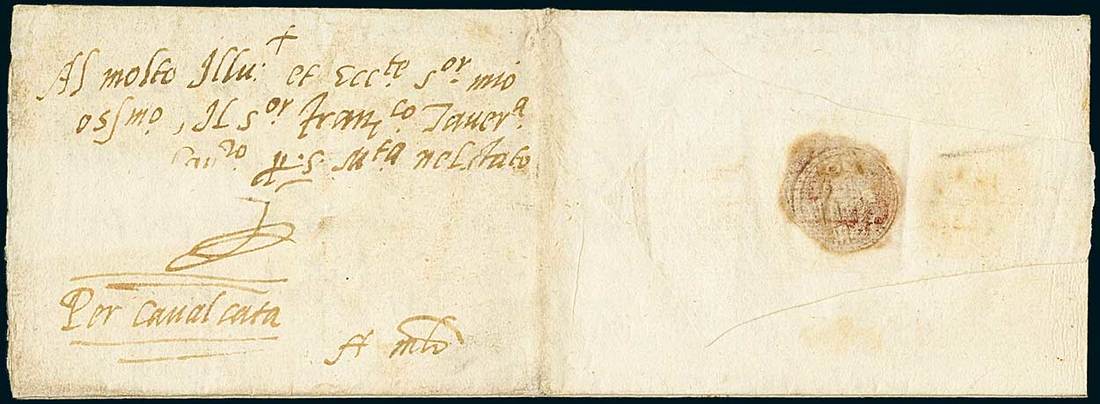 +
Al molto Illu: et Ecc.te s.or mio
oss.mo, Il s.or Fran.co Taver.a
p. s. M.ta nel stato
Per cavalcata
A mlo